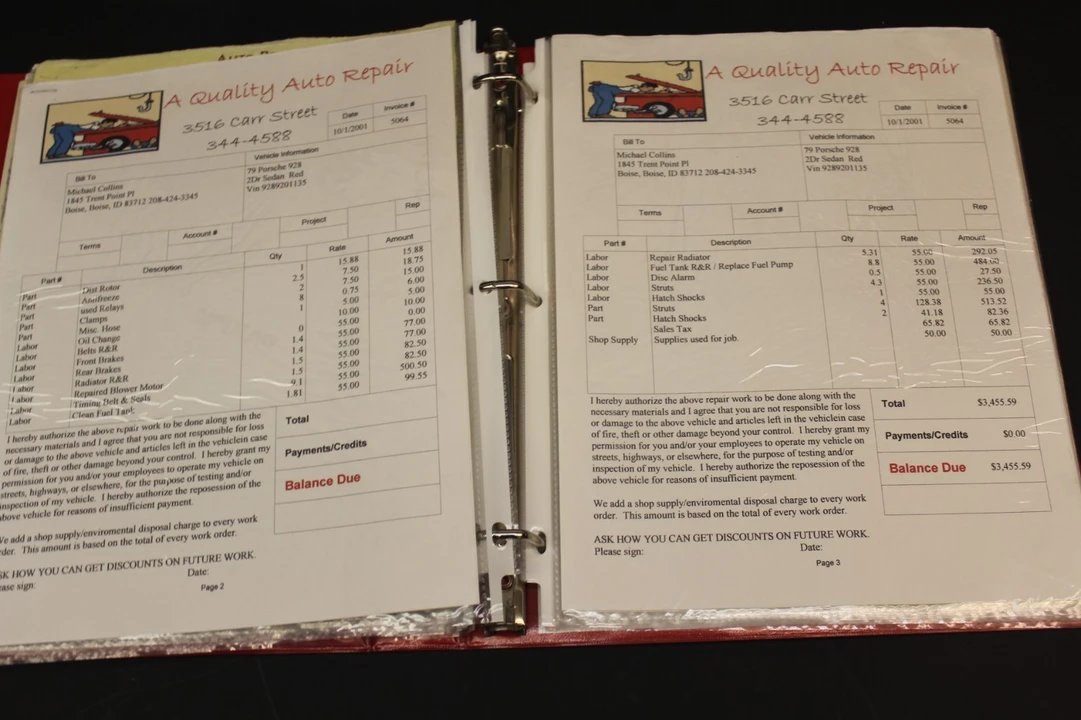 Auto
A Quality Auto Repair
3516 Carr Street
344-4588
Date Invoice #
10/1/2001 5064
Bill To
Michael Collins
1845 Trent Point Pl
Boise, Boise, ID 83712 208-424-3345
Vehicle Information
79 Porsche 928
2Dr Sedan Red
Vin 9289201135
Terms Account # Project Rep
Part # Description Qty Rate Amount
Part Dist Rotor 1 15.88 15.88
Part Antifreeze 2.5 7.50 18.75
Part used Relays 2 7.50 15.00
Part Clamps 8 0.75 6.00
Part Misc. Hose 1 5.00 5.00
Labor Oil Change 10.00 10.00
Labor Belts R&R 0 55.00 0.00
Labor Front Brakes 1.4 55.00 77.00
Labor Rear Brakes 1.4 55.00 77.00
Labor Radiator R&R 1.5 55.00 82.50
Labor Repaired Blower Motor 1.5 55.00 82.50
Labor Timing Belt & Seals 9.1 55.00 500.50
Labor Clean Fuel Tank 1.81 55.00 99.55
I hereby authorize the above repair work to be done along with the
necessary materials and I agree that you are not responsible for loss
or damage to the above vehicle and articles left in the vehiclein case
of fire, theft or other damage beyond your control. I hereby grant my
permission for you and/or your employees to operate my vehicle on
streets, highways, or elsewhere, for the purpose of testing and/or
inspection of my vehicle. I hereby authorize the reposession of the
above vehicle for reasons of insufficient payment.
We add a shop supply/enviromental disposal charge to every work
order. This amount is based on the total of every work order.
ASK HOW YOU CAN GET DISCOUNTS ON FUTURE WORK.
Please sign: Date:
Total
Payments/Credits
Balance Due
Page 2
A Quality Auto Repair
3516 Carr Street
344-4588
Date Invoice #
10/1/2001 5064
Bill To
Michael Collins
1845 Trent Point Pl
Boise, Boise, ID 83712 208-424-3345
Vehicle Information
79 Porsche 928
2Dr Sedan Red
Vin 9289201135
Terms Account # Project Rep
Part # Description Qty Rate Amount
Labor Repair Radiator 5.31 55.00 292.05
Labor Fuel Tank R&R / Replace Fuel Pump 8.8 55.00 484.00
Labor Disc Alarm 0.5 55.00 27.50
Labor Struts 4.3 55.00 236.50
Labor Hatch Shocks 1 55.00 55.00
Part Struts 4 128.38 513.52
Part Hatch Shocks 2 41.18 82.36
Sales Tax 65.82 65.82
Shop Supply Supplies used for job. 50.00 50.00
I hereby authorize the above repair work to be done along with the
necessary materials and I agree that you are not responsible for loss
or damage to the above vehicle and articles left in the vehiclein case
of fire, theft or other damage beyond your control. I hereby grant my
permission for you and/or your employees to operate my vehicle on
streets, highways, or elsewhere, for the purpose of testing and/or
inspection of my vehicle. I hereby authorize the reposession of the
above vehicle for reasons of insufficient payment.
We add a shop supply/enviromental disposal charge to every work
order. This amount is based on the total of every work order.
ASK HOW YOU CAN GET DISCOUNTS ON FUTURE WORK.
Please sign: Date:
Total $3,455.59
Payments/Credits $0.00
Balance Due $3,455.59
Page 3